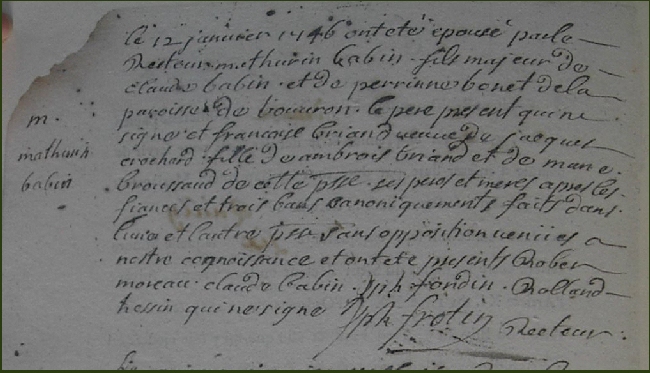 le 12 janvier 1746 ont eté epousé par le
Recteur mathurin babin fils majeur de
claude babin et de perrinne bonet de la
paroisse de bouvron le pere present qui ne
signe et francoise briand veuve de jacques
m.
crochard fille de ambrois briand et de marie
mathurin
broussaud de cette psse ses peres et meres apres les
babin
fiances et trois bans canoniquements faits dans
lune et lautre psse sans opposition venue a
nostre cognoissance et ont eté presents Rober
moreau claude babin Jph fondin Rolland
hessin qui ne signe Jph frotin Recteur